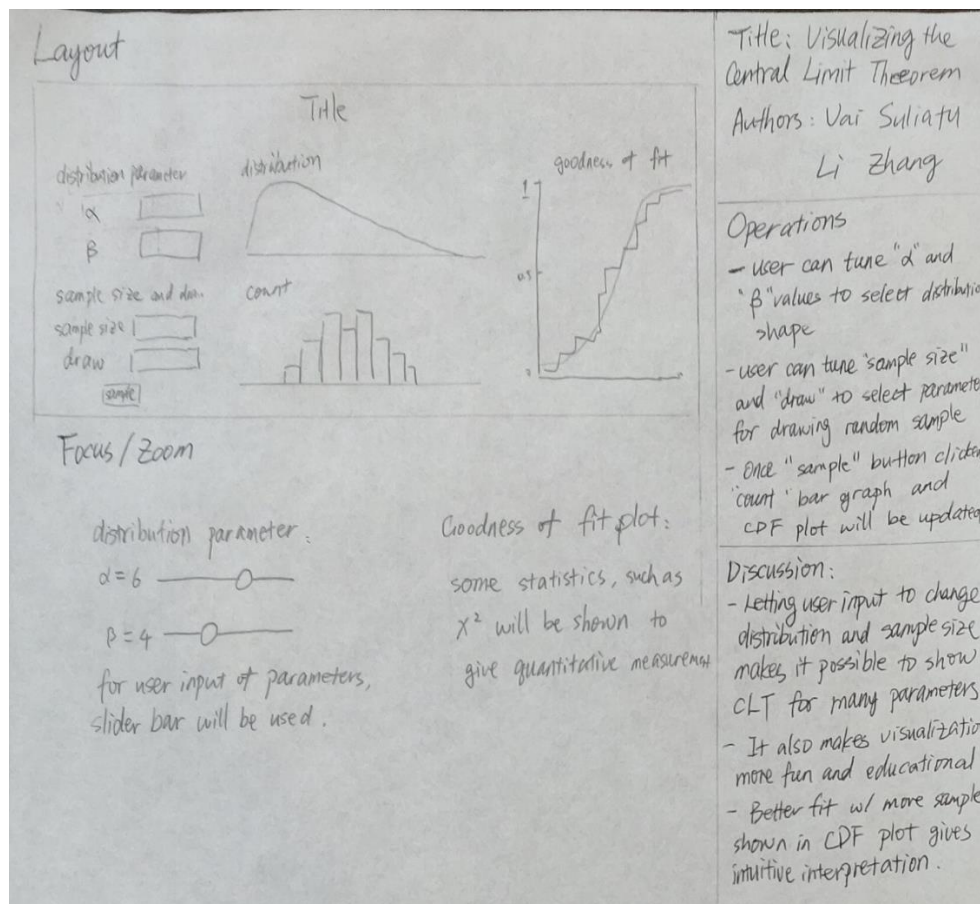 Layout
Title
distribution parameter
α
β
sample size and draw
sample size
draw
sample
distribution
count
goodness of fit
1
0.5
Focus/Zoom
distribution parameter:
α=6
β=4
for user input of parameters,
slider bar will be used.
Goodness of fit plot:
some statistics, such as
χ² will be shown to
give quantitative measurement
Title: Visualizing the
Central Limit Theorem
Authors: Vai Suliafu
Li Zhang
Operations
- user can tune "α" and
"β" values to select distributio
shape
- user can tune "sample size"
and "draw" to select paramete
for drawing random sample
- Once "sample" button clicke
"count" bar graph and
CDF plot will be updated
Discussion:
- Letting user input to change
distribution and sample size
makes it possible to show
CLT for many parameters
- It also makes visualizatio
more fun and educational
- Better fit w/ more sample
shown in CDF plot gives
intuitive interpretation.